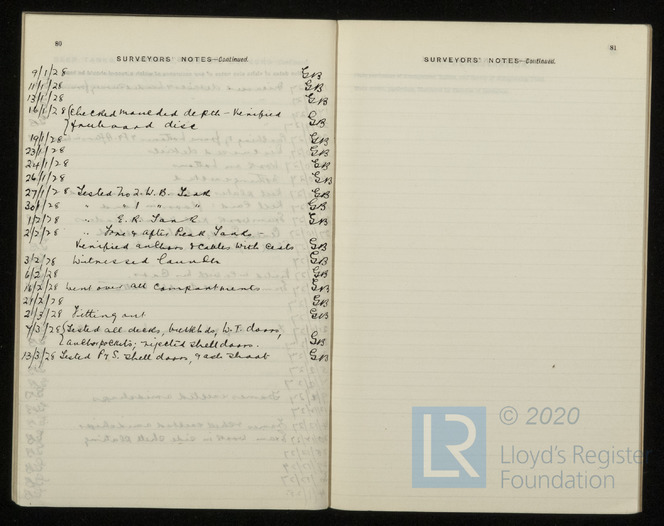 80
SURVEYORS' NOTES—Continued.
9/1/28 GB
11/1/28 GB
13/1/28 GB
16/1/28 Checked moulded depth - Verified
freeboard disc GB
19/1/28 GB
23/1/28 GB
24/1/28 GB
26/1/28 GB
27/1/28 Tested No 2 W.B. Tank GB
30/1/28 " " 1 " " GB
1/2/28 " E.R. Tank GB
2/2/28 " Fore & After Peak Tanks -
Verified anchors & cables with certs GB
3/2/28 Witnessed Launch GB
6/2/28 GB
16/2/28 Went over all compartments GB
21/2/28 GB
2/3/28 Fitting out GB
7/3/28 Tested all decks, bulkhds, W.T. doors,
; rejected shell doors. GB
13/3/28 Tested P & S. shell doors, GB
81
SURVEYORS' NOTES—Continued.
© 2020
LR
Lloyd's Register
Foundation